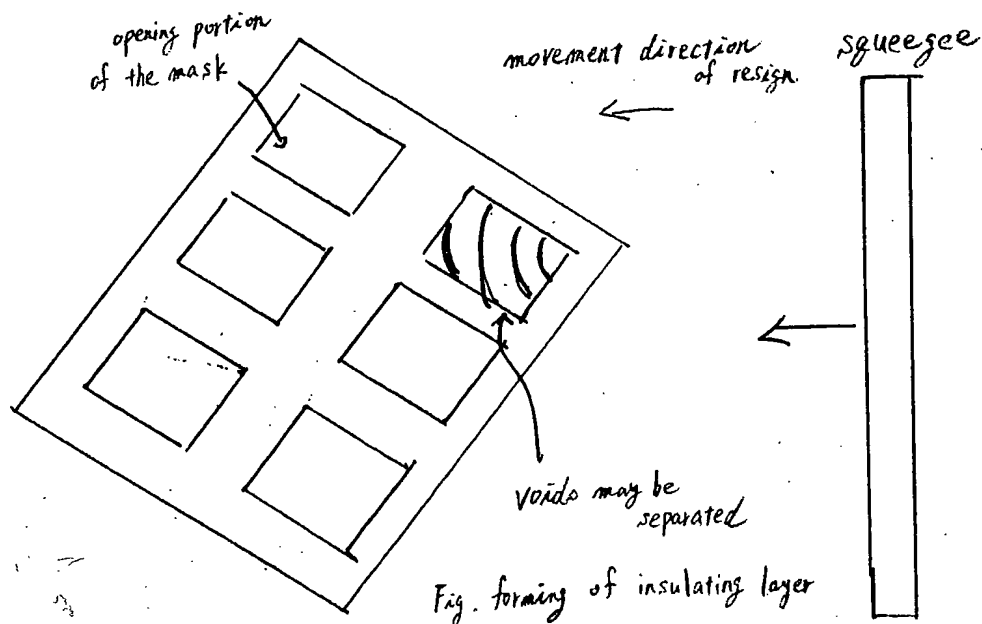 opening portion
of the mask
movement direction
of resign.
squeegee
voids may be
separated
Fig. forming of insulating layer